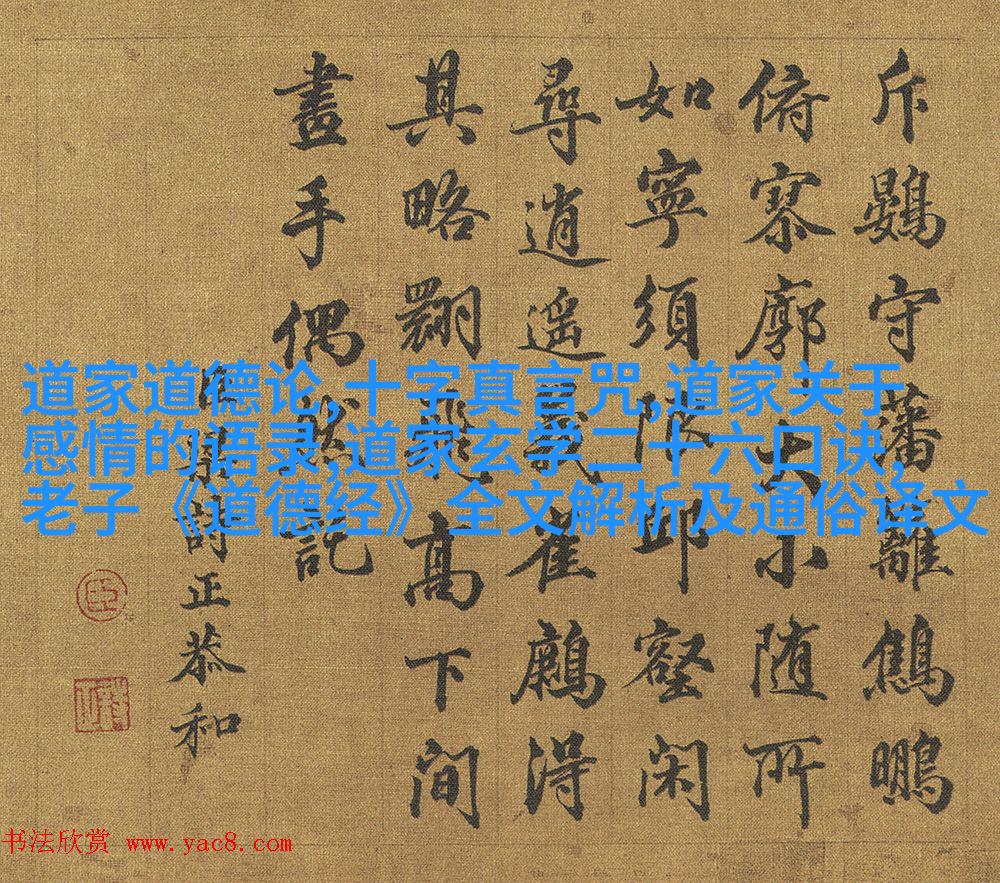 斥鷃守藩籬鷦鵬
俯寥廓大小随所
如寧須限邱壑閑
尋逍遥義雀得
其略翾飛高下間
畫手偶然託
臣梁詩正恭和
臣
道家道德论,十字真言咒,道家关于
感情的语录,道家玄学二十六口诀,
老子《道德经》全文解析及通俗译文
书法欣赏 www.yac8.com